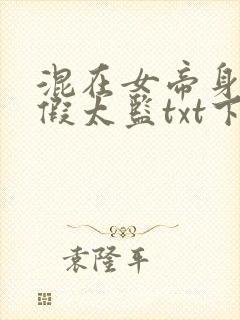 混在女帝身
假太监txt下
袁隆平